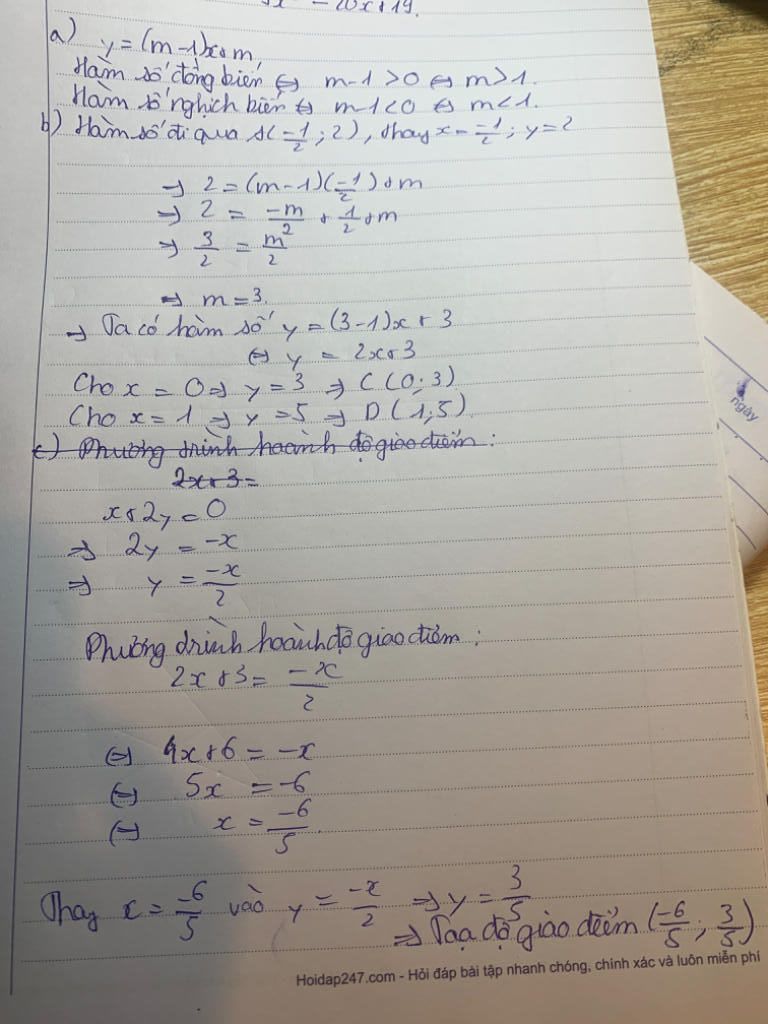 - 20x+19.
a) y=(m-1)x+m
Hàm số đồng biến ⇔ m-1>0 ⇔ m>1.
Hàm số nghịch biến ⇔ m-1<0 ⇔ m<1.
b) Hàm số đi qua A(-1/2; 2), thay x=-1/2; y=2
→ 2=(m-1)(-1/2)+m
⇒ 2 = -m/2 + 1/2 + m
⇒ 3/2 = m/2
⇒ m=3.
⇒ Ta có hàm số y=(3-1)x+3
⇔ y = 2x+3
Cho x = 0 ⇒ y=3 ⇒ C(0;3)
Cho x=1 ⇒ y=5 ⇒ D(1;5).
c) Phương trình hoành độ giao điểm:
2x+3=
x+2y=0
⇒ 2y = -x
⇒ y = -x/2
Phương trình hoành độ giao điểm:
2x+3= -x/2
⇔ 4x+6=-x
⇔ 5x =-6
⇔ x= -6/5.
Thay x=-6/5 vào y=-x/2 ⇒ y=3/5
⇒ Toạ độ giao điểm (-6/5; 3/5)
ngày
Hoidap247.com - Hỏi đáp bài tập nhanh chóng, chính xác và luôn miễn phí